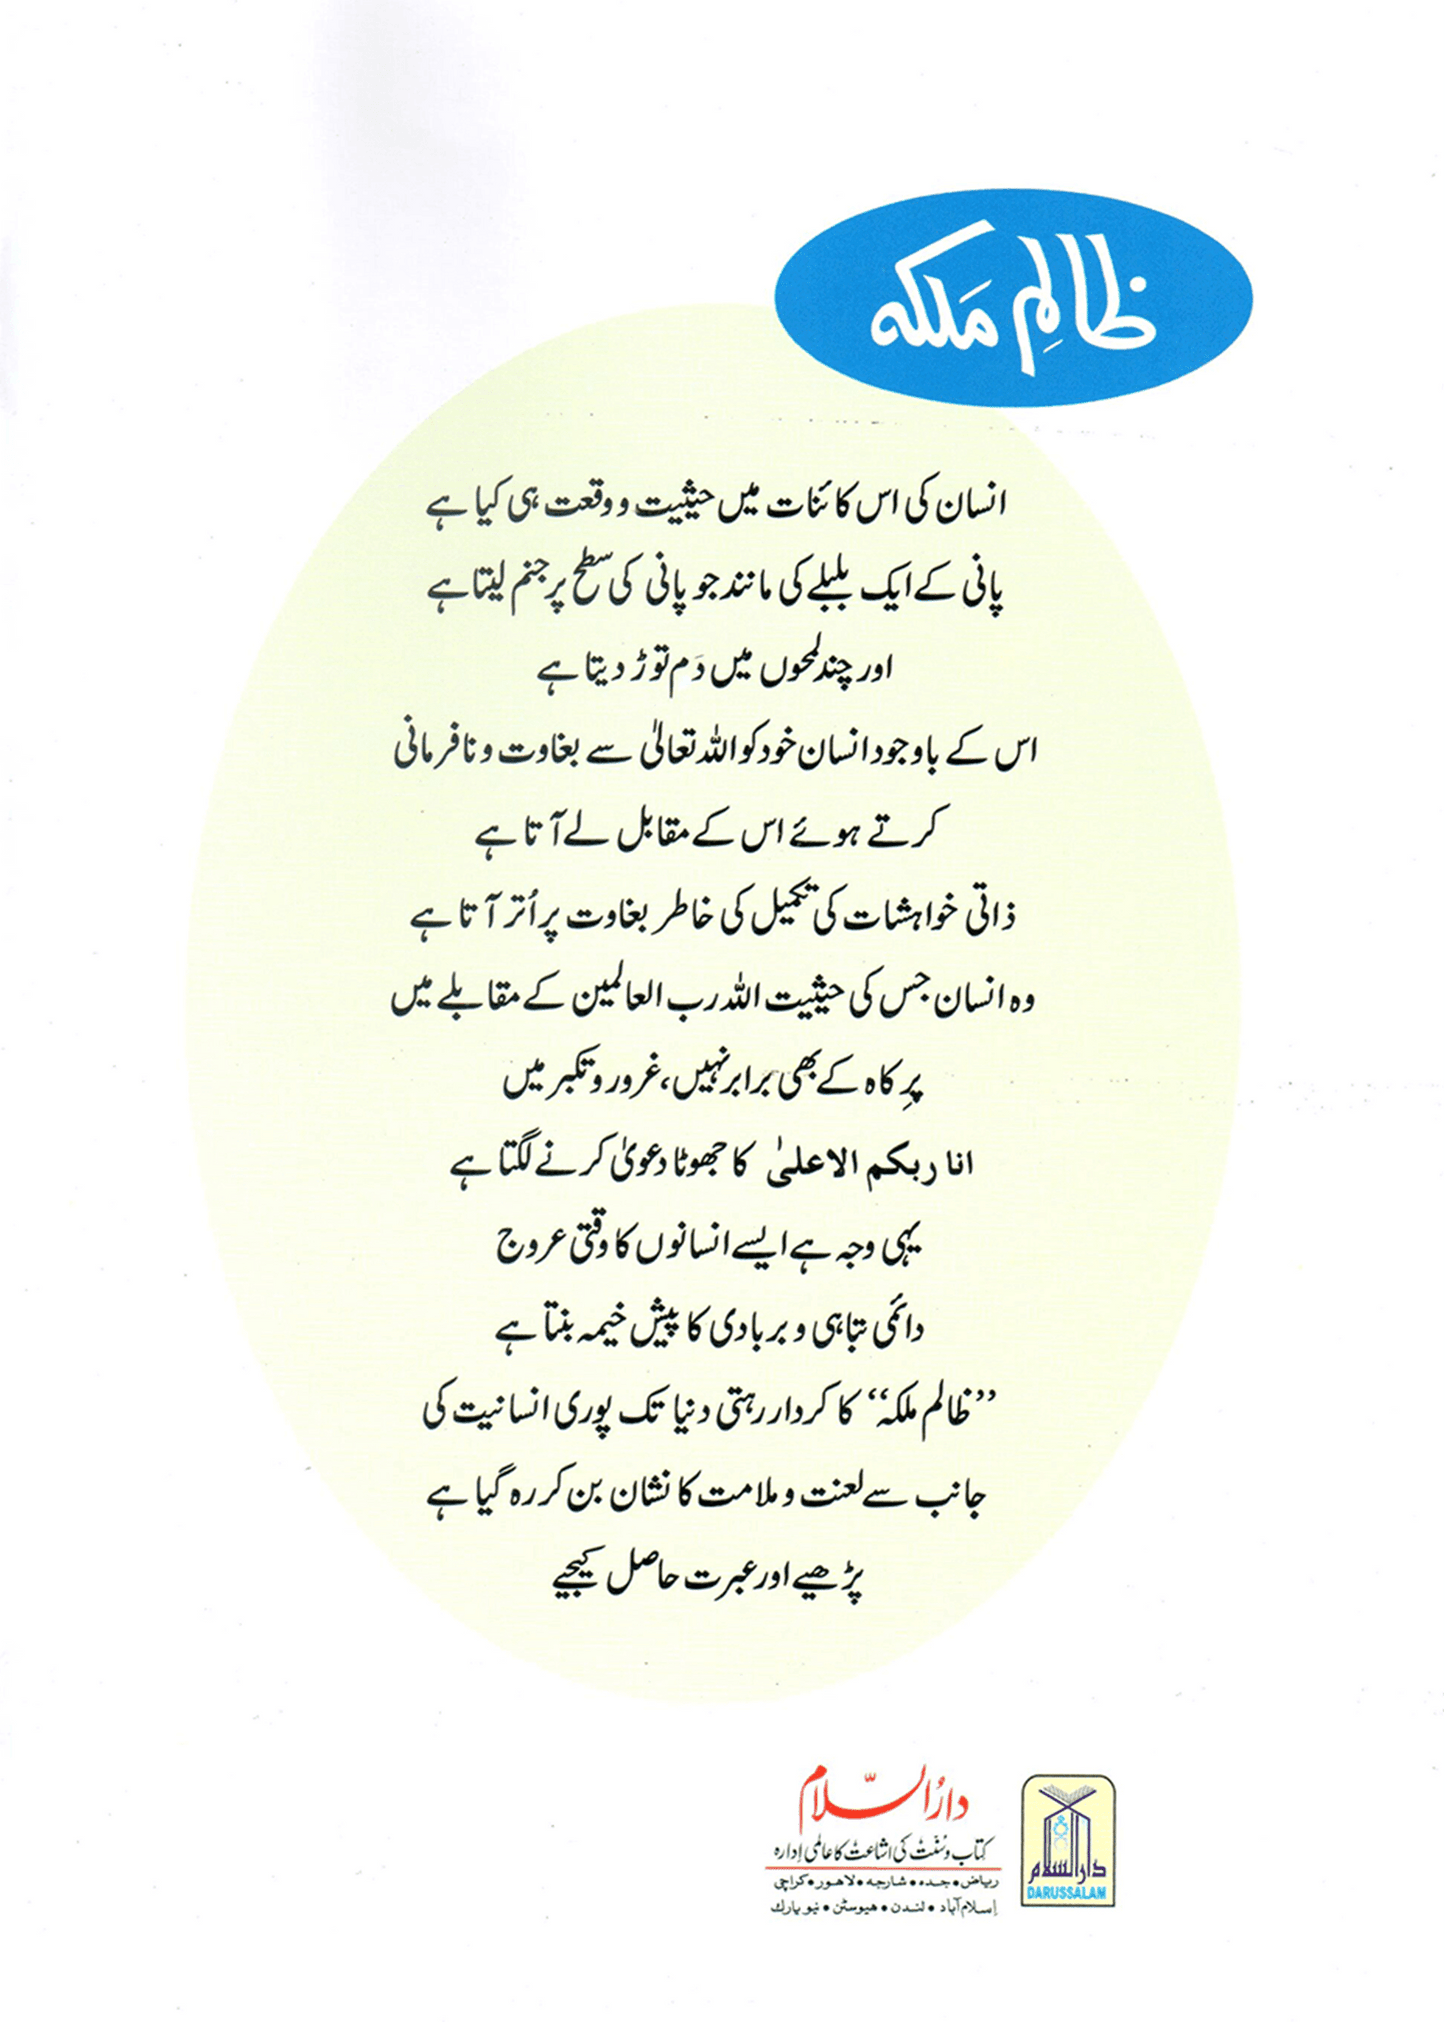 ظالِم مَلکہ
انسان کی اس کائنات میں حیثیت و وقعت ہی کیا ہے
پانی کے ایک بلبلے کی مانند جو پانی کی سطح پر جنم لیتا ہے
اور چند لمحوں میں دَم توڑ دیتا ہے
اس کے باوجود انسان خود کو اللہ تعالیٰ سے بغاوت و نافرمانی
کرتے ہوئے اس کے مقابل لے آتا ہے
ذاتی خواہشات کی تکمیل کی خاطر بغاوت پر اُتر آتا ہے
وہ انسان جس کی حیثیت اللہ رب العالمین کے مقابلے میں
پرِ کاہ کے بھی برابر نہیں، غرور و تکبر میں
انا ربکم الاعلیٰ کا جھوٹا دعویٰ کرنے لگتا ہے
یہی وجہ ہے ایسے انسانوں کا وقتی عروج
دائمی تباہی و بربادی کا پیش خیمہ بنتا ہے
”ظالم ملکہ“ کا کردار رہتی دنیا تک پوری انسانیت کی
جانب سے لعنت و ملامت کا نشان بن کر رہ گیا ہے
پڑھیے اور عبرت حاصل کیجیے
دارُالسّلام
کتاب و سنت کی اشاعت کا عالمی اِدارہ
ریاض • جدہ • شارجہ • لاهور • کراچی
اِسلام آباد • لندن • هیوسٹن • نیو یارک
دارالسلام
DARUSSALAM